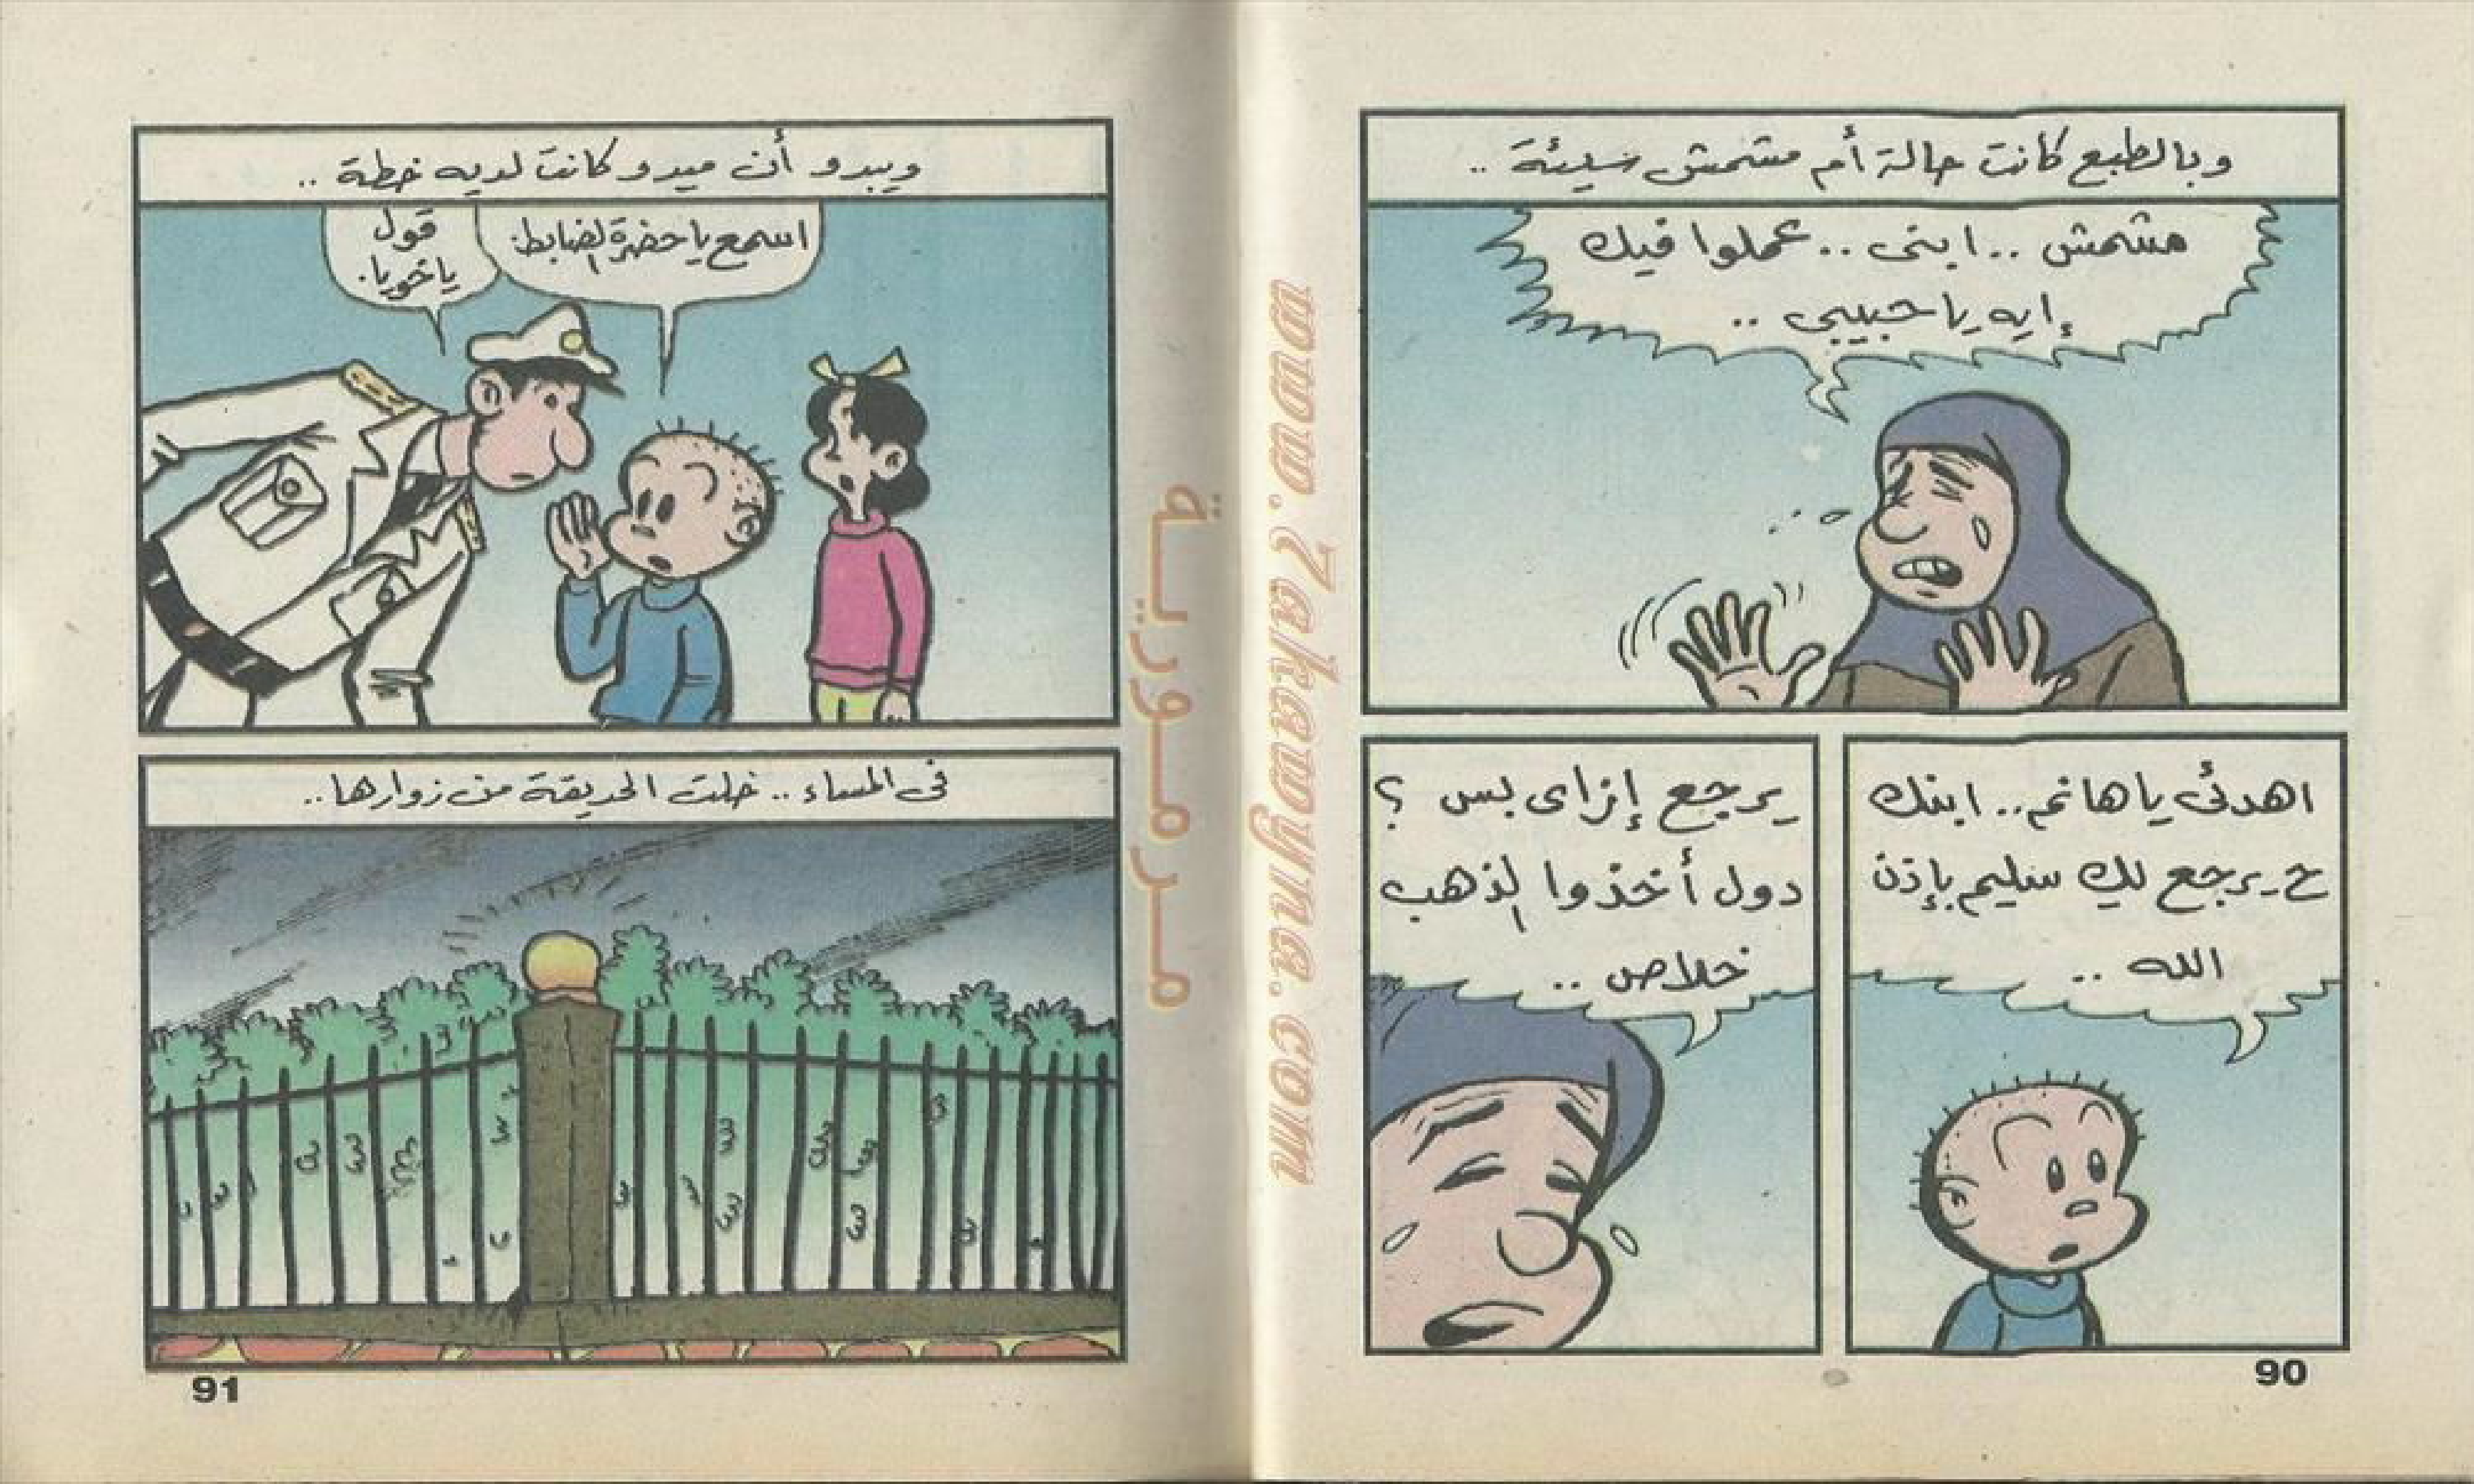 وبالطبع كانت حالة أم مشمش سيئة ..
مشمش .. ابنى .. عملوا فيك
إيه يا حبيبي ..
اهدئى يا هانم .. ابنك
ح يرجع لك سليم بإذن
الله ..
يرجع إزاى بس ؟
دول أخذوا الذهب
خلاص ..
90
www.7akawyna.com
مرمورية
ويبدو أن ميدو كانت لديه خطة ..
اسمع يا حضرة الضابط.
قول
ياخويا.
فى المساء .. خلت الحديقة من زوارها ..
91